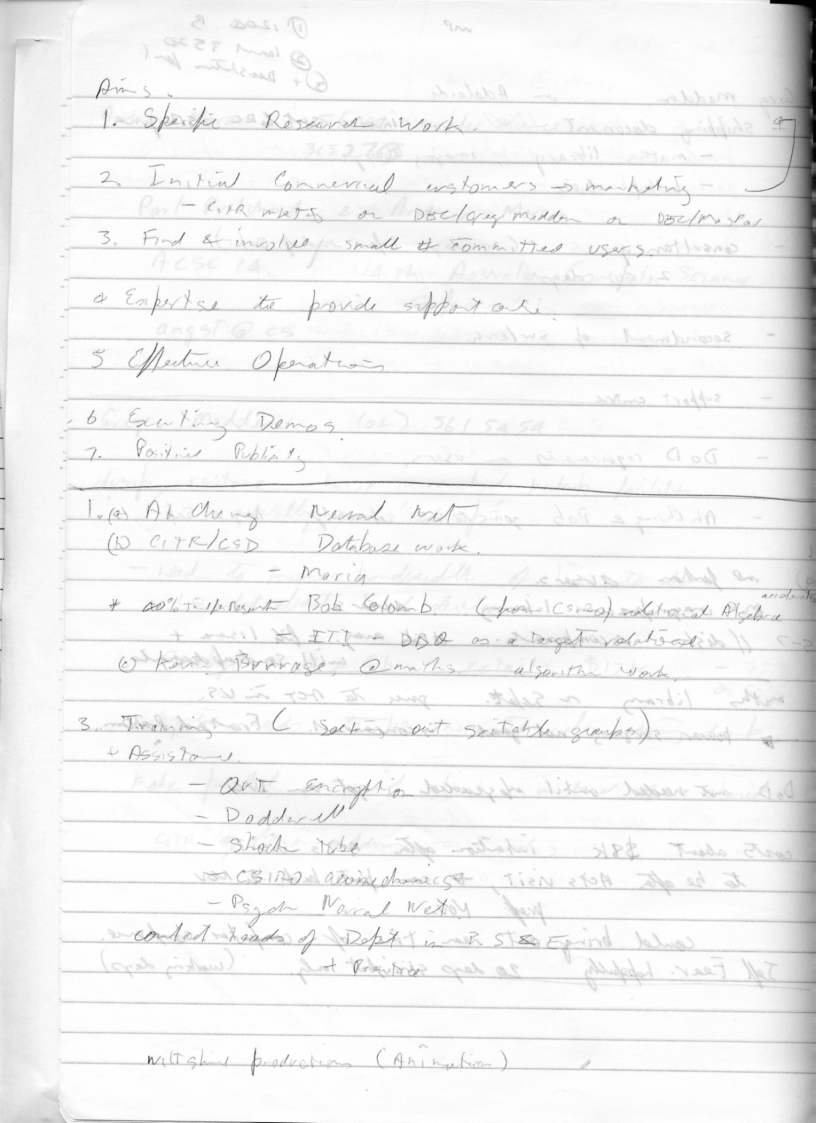 Aims.
1. Specific Research Work.
2. Initial Commercial customers → marketing
- CiTR meeting or DEC/Greg Madden or DEC/MasPar
3. Find & involve small # committed users.
4 Expertise to provide support
5 Effective Operations
6 Exciting Demos.
7. Positive Publicity
1. (a) Ah Chung Neural Net
(b) CiTR/CSD Database work.
- Maria
* Bob Colomb. relational Algebra
- ITI - DBQ as a target relational
(c) Kevin Burrage @maths. algorithm work.
3. Training ( seeking out suitable groups)
+ Assistance.
- QUT Encryption
- Dodderell
- Shock Tube
- CSIRO
- Psych Neural Net
contact heads of Dept in
at
Wiltshire productions (Animation)